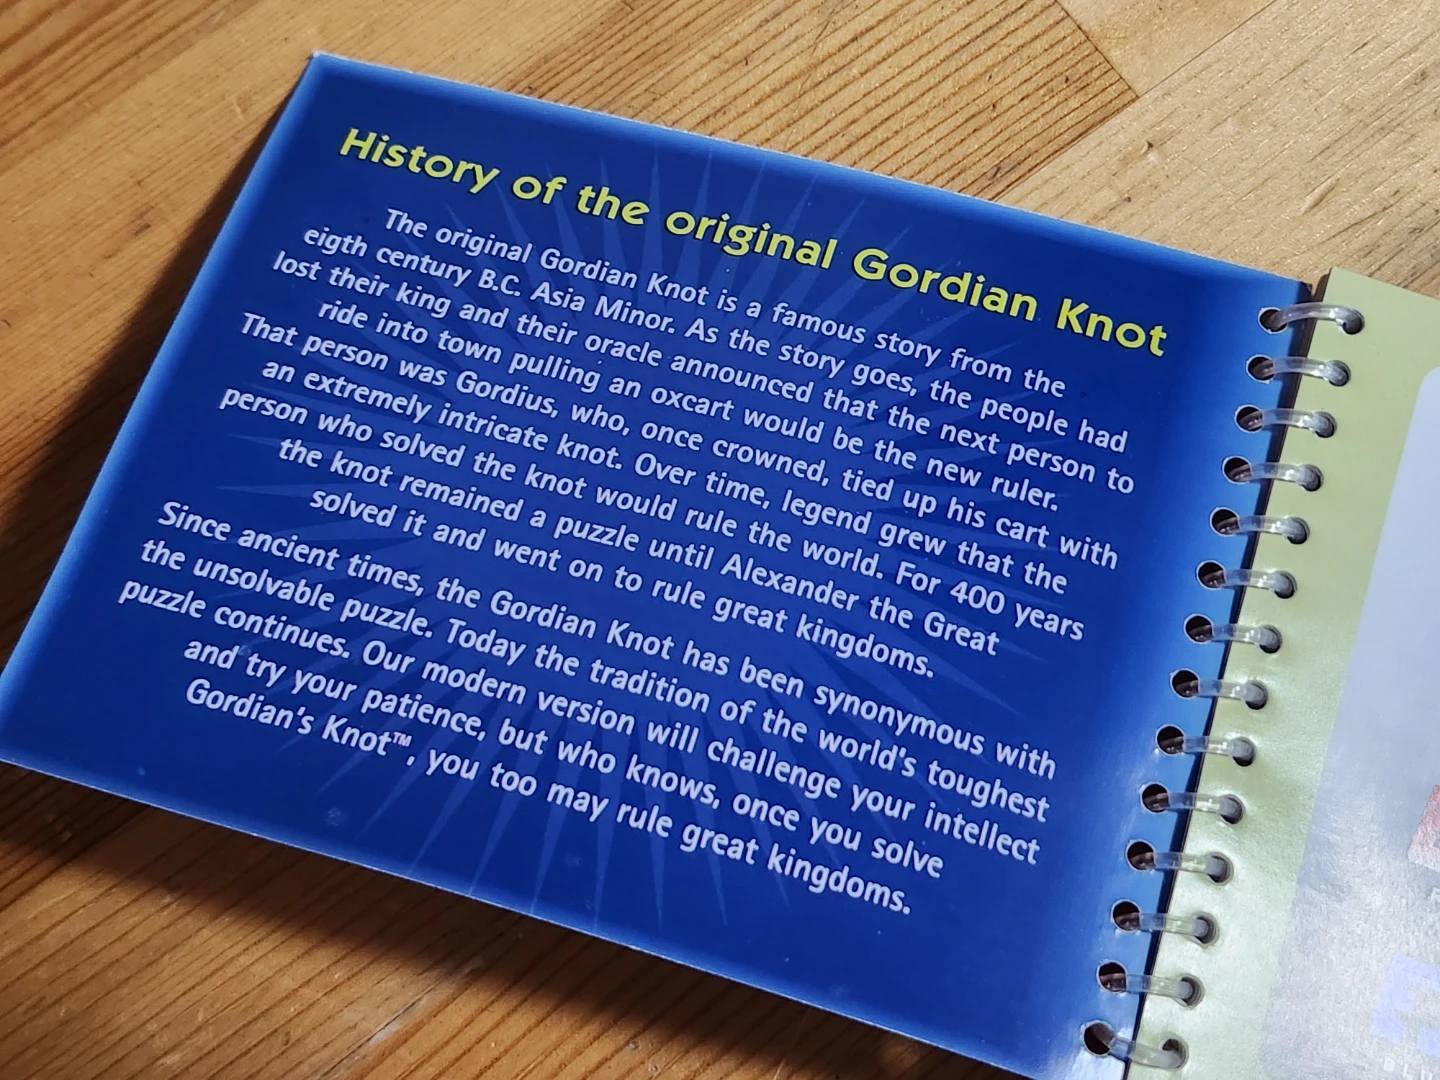 History of the original Gordian Knot
The original Gordian Knot is a famous story from the
eigth century B.C. Asia Minor. As the story goes, the people had
lost their king and their oracle announced that the next person to
ride into town pulling an oxcart would be the new ruler.
That person was Gordius, who, once crowned, tied up his cart with
an extremely intricate knot. Over time, legend grew that the
person who solved the knot would rule the world. For 400 years
the knot remained a puzzle until Alexander the Great
solved it and went on to rule great kingdoms.
Since ancient times, the Gordian Knot has been synonymous with
the unsolvable puzzle. Today the tradition of the world's toughest
puzzle continues. Our modern version will challenge your intellect
and try your patience, but who knows, once you solve
Gordian's Knot™, you too may rule great kingdoms.